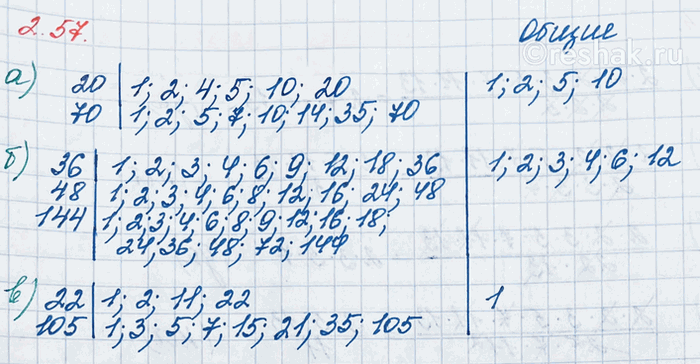 2.57. Общие
а) 20 | 1; 2; 4; 5; 10; 20 | 1; 2; 5; 10
70 | 1; 2; 5; 7; 10; 14; 35; 70
б) 36 | 1; 2; 3; 4; 6; 9; 12; 18; 36 | 1; 2; 3; 4; 6; 12
48 | 1; 2; 3; 4; 6; 8; 12; 16; 24; 48
144 | 1; 2; 3; 4; 6; 8; 9; 12; 16; 18;
24; 36; 48; 72; 144
в) 22 | 1; 2; 11; 22 | 1
105 | 1; 3; 5; 7; 15; 21; 35; 105
©reshak.ru